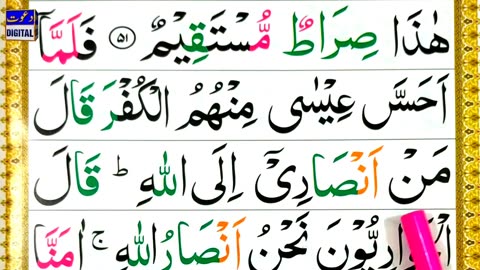 دعوت
DIGITAL
هٰذَا صِرَاطٌ مُّسْتَقِيْمٌ ﴿۵۱﴾ فَلَمَّاۤ
اَحَسَّ عِيْسٰى مِنْهُمُ الْكُفْرَ قَالَ
مَنْ اَنْصَارِىْۤ اِلَى اللّٰهِ ؕ قَالَ
نَحْنُ اَنْصَارُ اللّٰهِ ۚ اٰمَنَّا